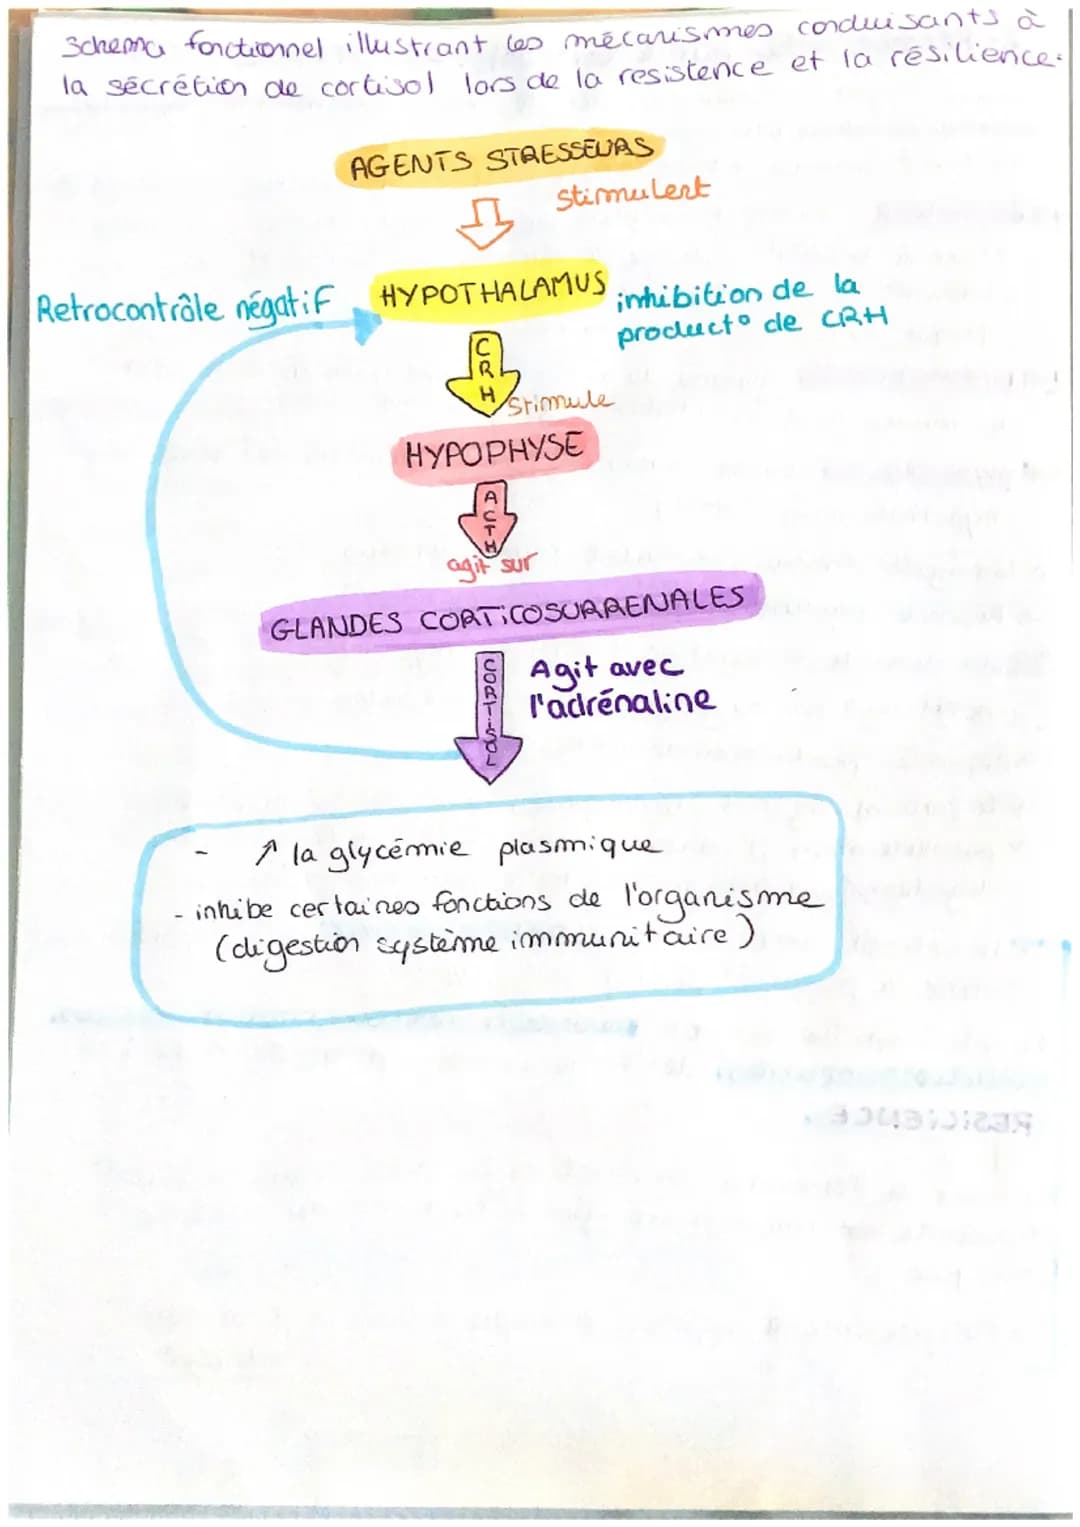 Schema fonctionnel illustrant les mécanismes conduisants à
la sécrétion de cortisol lors de la resistence et la résilience.
AGENTS STRESSEURS
stimulent
HYPOTHALAMUS
Retrocontrôle négatif
inhibition de la
product° de CRH
CRH
Stimule
HYPOPHYSE
ACTH
agit sur
GLANDES CORTICOSURRENALES
CORTISOL
Agit avec
l'adrénaline
- ↗ la glycémie plasmique
- inhibe certaines fonctions de l'organisme
(digestion système immunitaire)
RESILIENCE